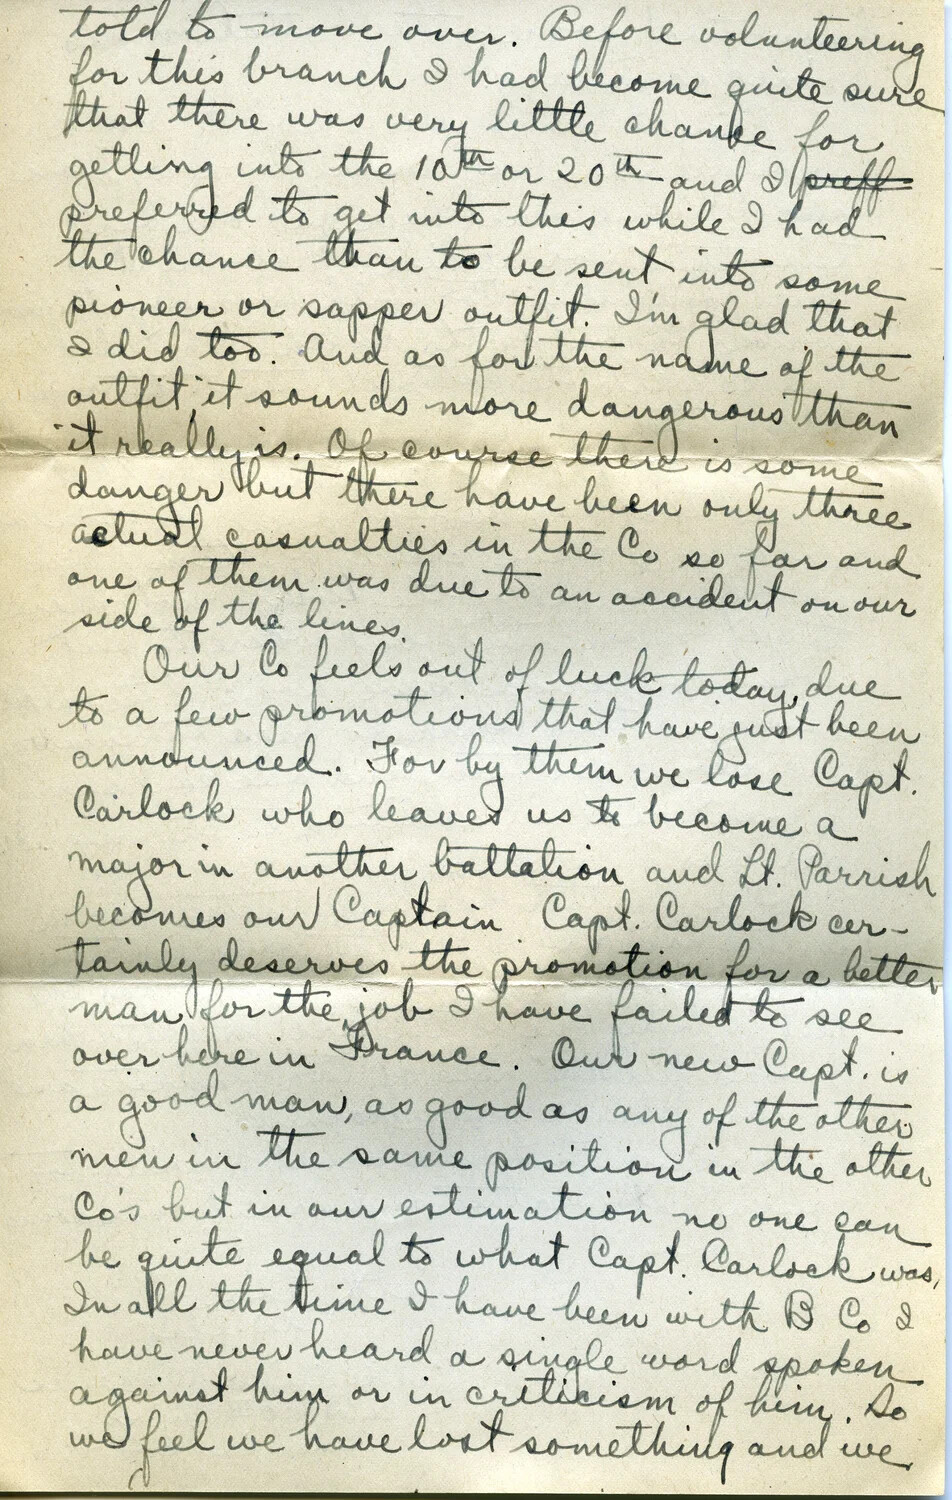 told to move over. Before volunteering
for this branch I had become quite sure
that there was very little chance for
getting into the 10th or 20th and I preff
preferred to get into this while I had
the chance than to be sent into some
pioneer or sapper outfit. I'm glad that
I did too. And as for the name of the
outfit, it sounds more dangerous than
it really is. Of course there is some
danger but there have been only three
actual casualties in the Co so far and
one of them was due to an accident on our
side of the lines.
Our Co feels out of luck today, due
to a few promotions that have just been
announced. For by them we lose Capt.
Carlock who leaves us to become a
major in another battalion and Lt. Parrish
becomes our Captain Capt. Carlock cer-
tainly deserves the promotion for a better
man for the job I have failed to see
over here in France. Our new Capt. is
a good man, as good as any of the other
men in the same position in the other
Co's but in our estimation no one can
be quite equal to what Capt. Carlock was,
In all the time I have been with B Co I
have never heard a single word spoken
against him or in criticism of him. So
we feel we have lost something and we